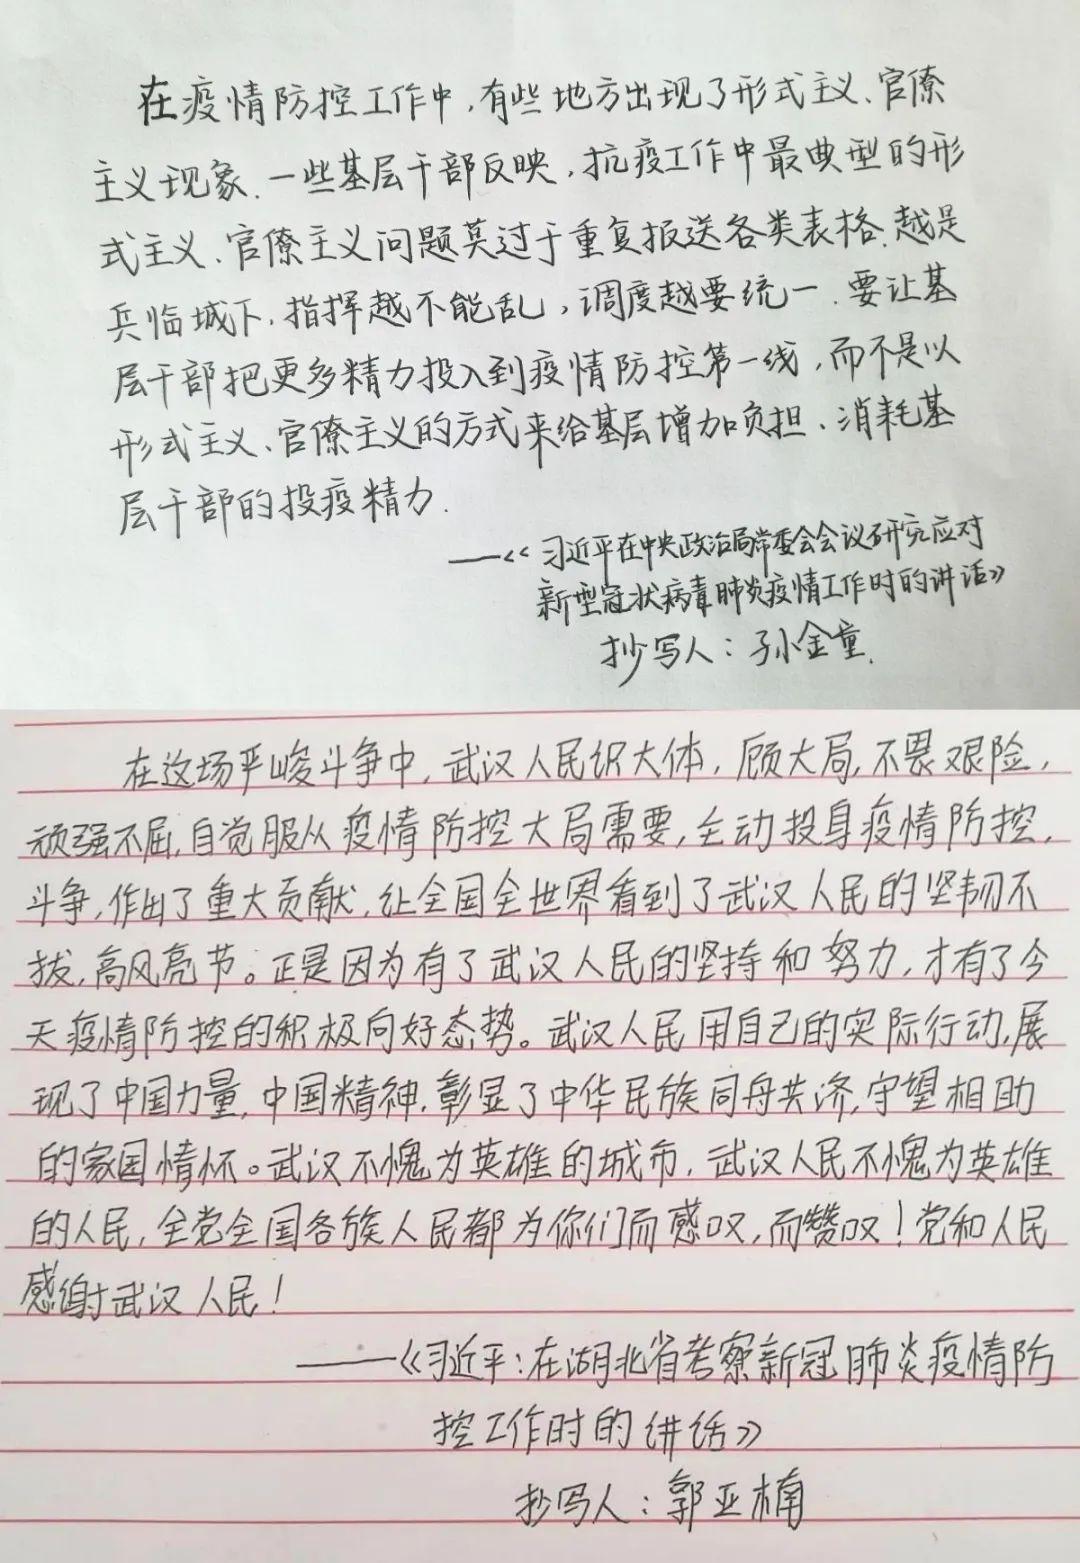 在疫情防控工作中,有些地方出现了形式主义、官僚
主义现象.一些基层干部反映,抗疫工作中最典型的形
式主义、官僚主义问题莫过于重复报送各类表格.越是
兵临城下,指挥越不能乱,调度越要统一.要让基
层干部把更多精力投入到疫情防控第一线,而不是以
形式主义、官僚主义的方式来给基层增加负担、消耗基
层干部的投疫精力.
——《习近平在中央政治局常委会会议研究应对
新型冠状病毒肺炎疫情工作时的讲话》
抄写人:孙金童.
在这场严峻斗争中,武汉人民识大体,顾大局,不畏艰险,
顽强不屈,自觉服从疫情防控大局需要,主动投身疫情防控,
斗争,作出了重大贡献,让全国全世界看到了武汉人民的坚韧不
拔,高风亮节。正是因为有了武汉人民的坚持和努力,才有了今
天疫情防控的积极向好态势。武汉人民用自己的实际行动,展
现了中国力量,中国精神,彰显了中华民族同舟共济,守望相助
的家国情怀。武汉不愧为英雄的城市,武汉人民不愧为英雄
的人民,全党全国各族人民都为你们而感叹,而赞叹!党和人民
感谢武汉人民!
——《习近平:在湖北省考察新冠肺炎疫情防
控工作时的讲话》
抄写人:郭亚楠